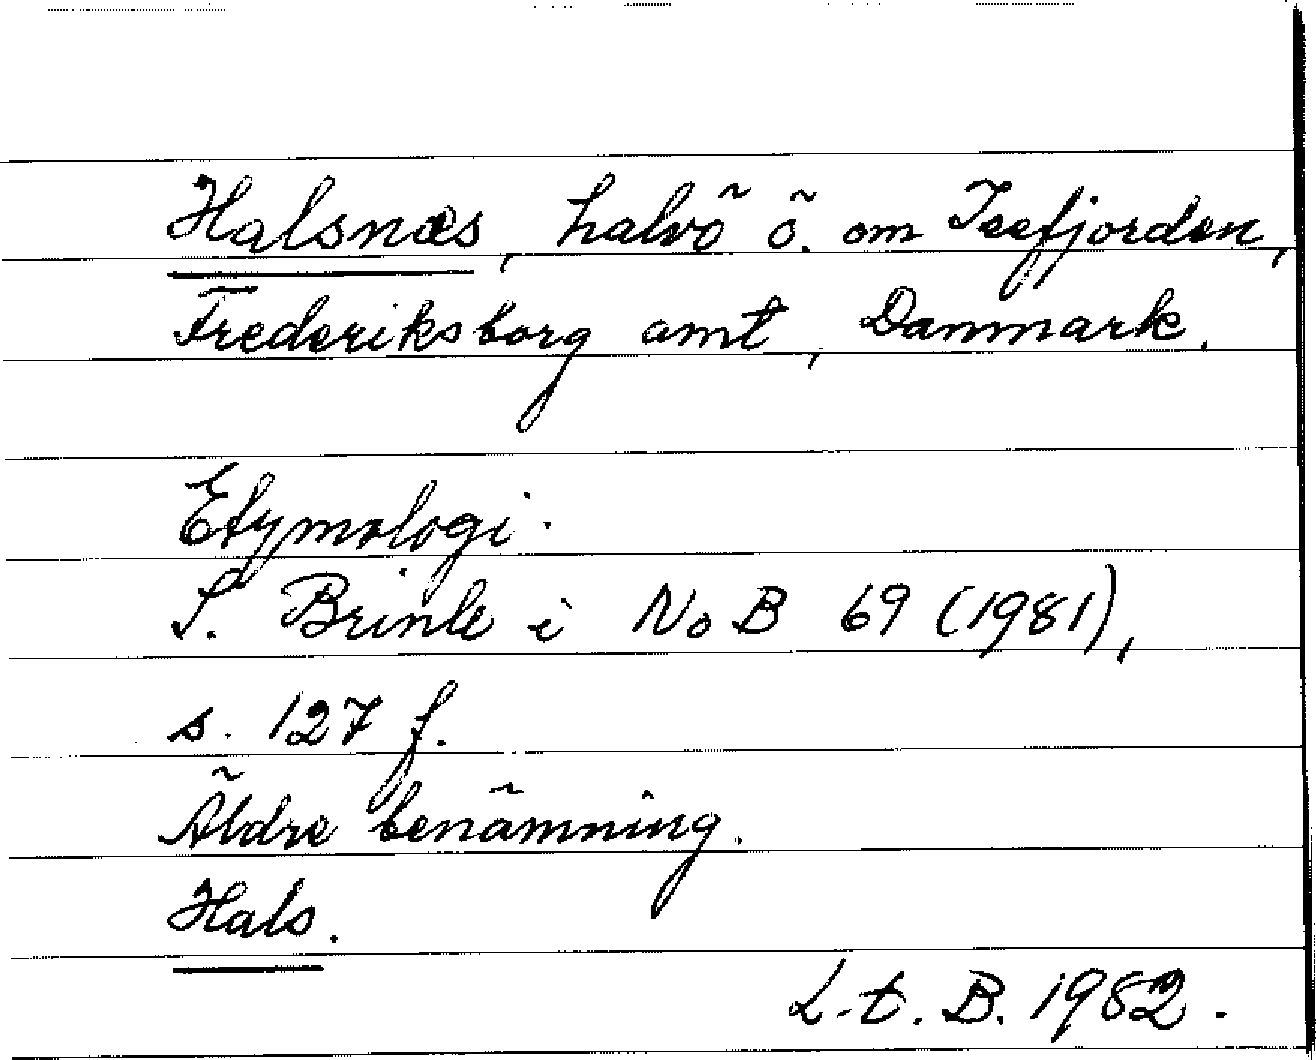 Halsnæs, halvö ö. om Isefjorden,
Frederiksborg amt, Danmark.
Etymologi.
S. Brink i NoB 69 (1981),
s. 127 f.
Äldre benämning.
Hals.
L-t. B. 1982.